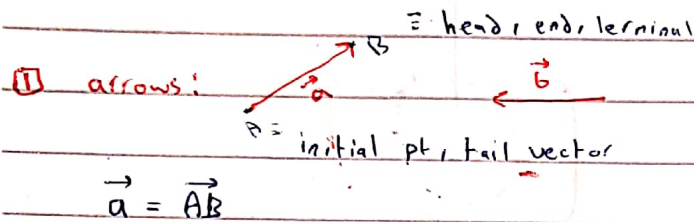 B ≡ head, end, terminal
1 arrows: a⃗ b⃗
A ≡ initial pt, tail vector
a⃗ = AB⃗